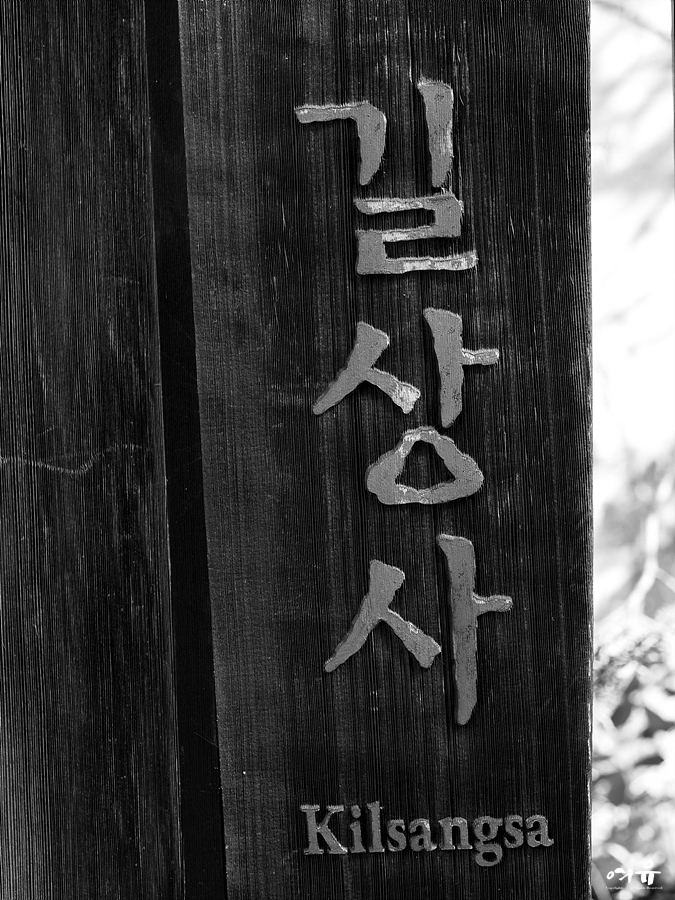 길상사
Kilsangsa
여유